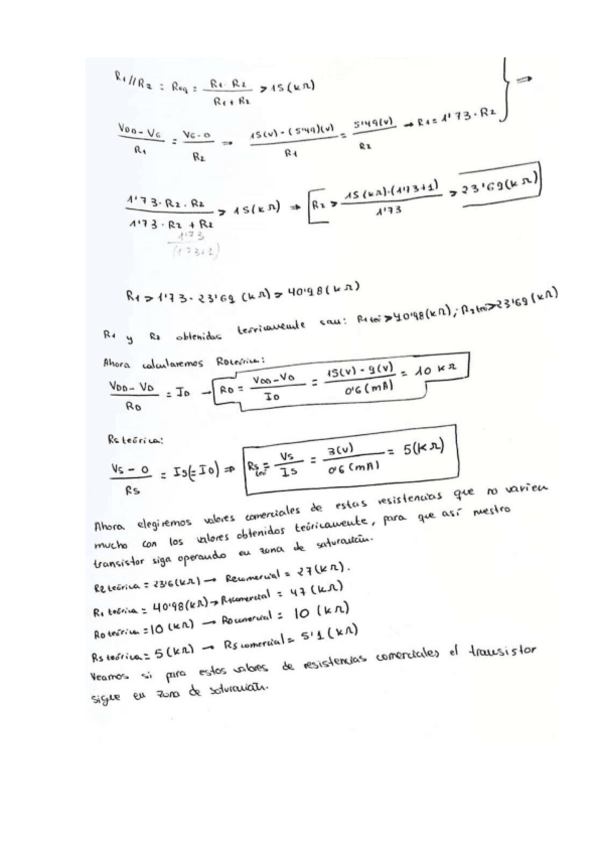 R1//R2 : Req = R1·R2 / R1+R2 > 15(kΩ)
VDD-VG / R1 = VG-0 / R2 ⇒ 15(V)-(5'49)(V) / R1 = 5'49(V) / R2 → R1 = 1'73·R2 } ⇒
1'73·R2·R2 / 1'73·R2+R2 > 15(kΩ) ⇒ R2 > 15(kΩ)·(1'73+1) / 1'73 > 23'69(kΩ)
1'73 / (1'73+1)
R1 > 1'73·23'69(kΩ) > 40'98(kΩ)
R1 y R2 obtenidas teóricamente son: R1teo > 40'98(kΩ); R2teo > 23'69(kΩ)
Ahora calcularemos RDteórica:
VDD-VD / RD = ID → RD = VDD-VD / ID = 15(V)-9(V) / 0'6(mA) = 10 kΩ
Rsteórica:
VS-0 / RS = IS(=ID) ⇒ RSteo = VS / IS = 3(V) / 0'6(mA) = 5(kΩ)
Ahora elegiremos valores comerciales de estas resistencias que no varíen
mucho con los valores obtenidos teóricamente, para que así nuestro
transistor siga operando en zona de saturación.
R2teórica = 23'6(kΩ) → R2comercial = 27(kΩ).
R1 teórica = 40'98(kΩ) → R1comercial = 47(kΩ)
RDteórica = 10(kΩ) → RDcomercial = 10(kΩ)
RSteórica = 5(kΩ) → RS comercial = 5'1(kΩ)
Veamos si para estos valores de resistencias comerciales el transistor
sigue en zona de saturación.